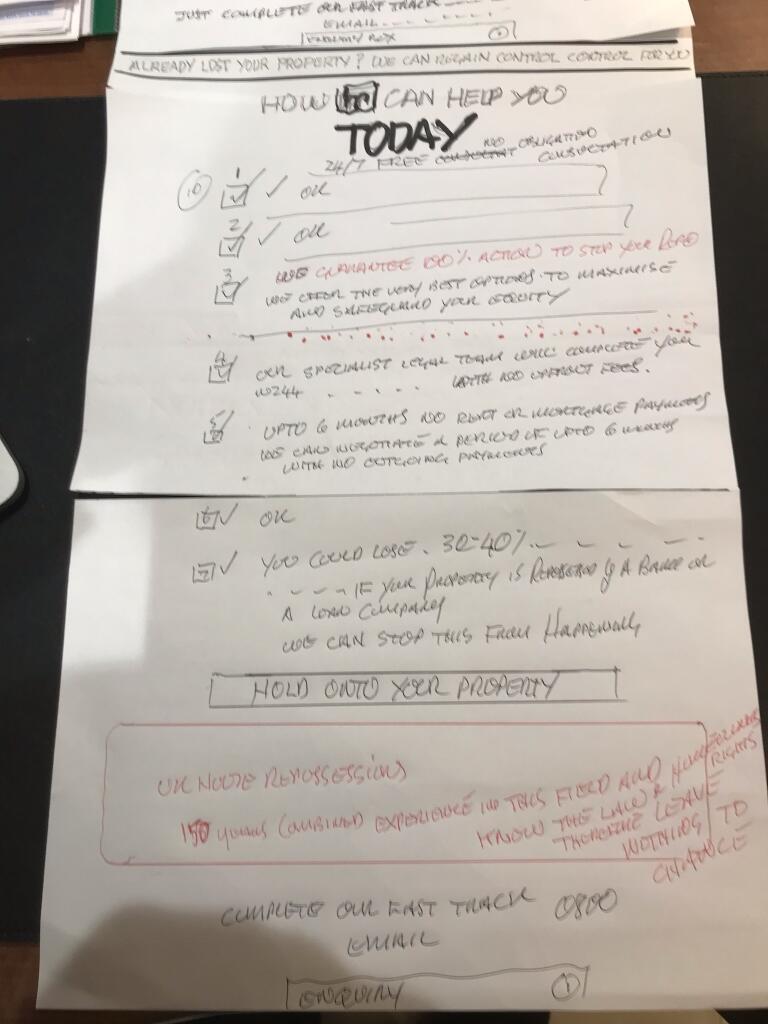 JUST COMPLETE OUR FAST TRACK - - - -
EMAIL - - - - - -
ENQUIRY BOX 1
ALREADY LOST YOUR PROPERTY? WE CAN REGAIN CONTROL CONTROL FOR YOU
HOW WE CAN HELP YOU
TODAY
24/7 FREE NO OBLIGATION
CONSULTATION
10 1 ✓ ✓ OK
2 ✓ ✓ OK
WE GUARANTEE 100% ACTION TO STOP YOUR REPO
3 ✓ WE OFFER THE VERY BEST OPTIONS TO MAXIMISE
AND SAFEGUARD YOUR EQUITY
4 OUR SPECIALIST LEGAL TEAM WILL COMPLETE YOUR
N244 - - - - - WITH NO UPFRONT FEES.
5 UPTO 6 MONTHS NO RENT OR MORTGAGE PAYMENTS
WE CAN NEGOTIATE A PERIOD OF UPTO 6 MONTHS
WITH NO OUTGOING PAYMENTS
6 ✓ OK
7 ✓ YOU COULD LOSE. 30-40% - - - - -
- - - - IF YOUR PROPERTY IS REPOSSESSED BY A BANK OR
A LOAN COMPANY
WE CAN STOP THIS FROM HAPPENING
HOLD ONTO YOUR PROPERTY
UK HOUSE REPOSSESSIONS
150 YEARS COMBINED EXPERIENCE IN THIS FIELD AND
KNOW THE LAW & HOMEOWNERS
RIGHTS
THEREFORE LEAVE
NOTHING TO
CHANCE
COMPLETE OUR FAST TRACK 0800
EMAIL
ENQUIRY 1